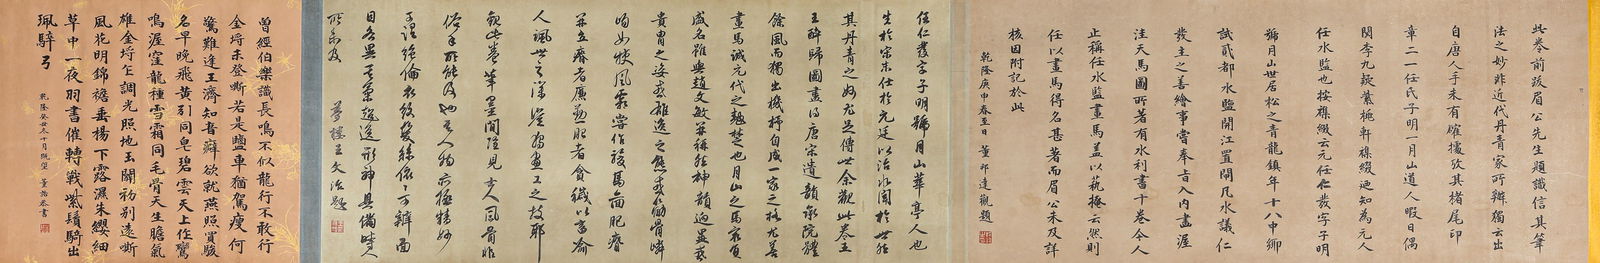 此卷前跋眉公先生題識信其筆
法之妙非近代丹青家所辦獨云出
自唐人手未有確據攷其楮尾印
章二一任氏子明一月山道人暇日偶
閱李九疑紫桃軒襍綴廼知為元人
任水監也按襍綴云元任仁發字子明
號月山世居松之青龍鎮年十八中鄉
試貳都水監開江置閘凡水議仁
發主之善繪事嘗奉旨入內畫渥
洼天馬圖所著有水利書十卷今人
止稱任水監畫馬蓋以藝掩云然則
任以畫馬得名甚著而眉公未及詳
核因附記於此
乾隆庚申春至日 董邦達觀題
任仁發字子明號月山華亭人也
生於宋末仕於元廷以治水聞於世然
其丹青之妙尤足傳世余觀此卷五
王醉歸圖畫得唐宋遺韻承院體
餘風而獨出機抒自成一家之格尤善
畫馬誠元代之翹楚也月山之馬
威名雖與趙文敏並稱然神韻迥異或
貴冑之姿或雄逸之態或筋骨嶙
峋如快風霜嘗作二馬圖肥瘠
並立瘠者廉勁肥者貪穢以畜喻
人諷世之深豈為畫工之技耶
觀此卷筆墨間隱見古人風骨非
俗手所能及也其人物亦極精妙
設色絕倫衣紋髮絲俱可辨面
目各異其氣韻逸形神具備時人
所不及
夢樓王文治題
曾經伯樂識長鳴不似龍行不敢行
金埒未登嘶若是鹽車猶駕瘦何
驚難逢王濟知音癖欲就燕昭買駿
名早晚飛黃引同皂碧雲天上作鸞
鳴渥窪龍種雪霜同毛骨天生膽氣
雄金埒乍調光照地玉關初別遠嘶
風花明錦襜垂楊下露濕朱纓細
草中一夜羽書催轉戰紫髯騎出
珮騂弓
乾隆癸丑冬十月既望 董誥恭書